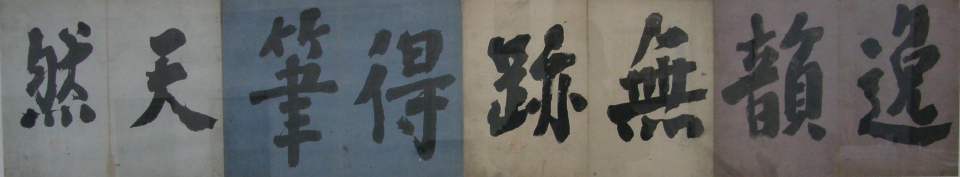 逸韻無跡得筆天然